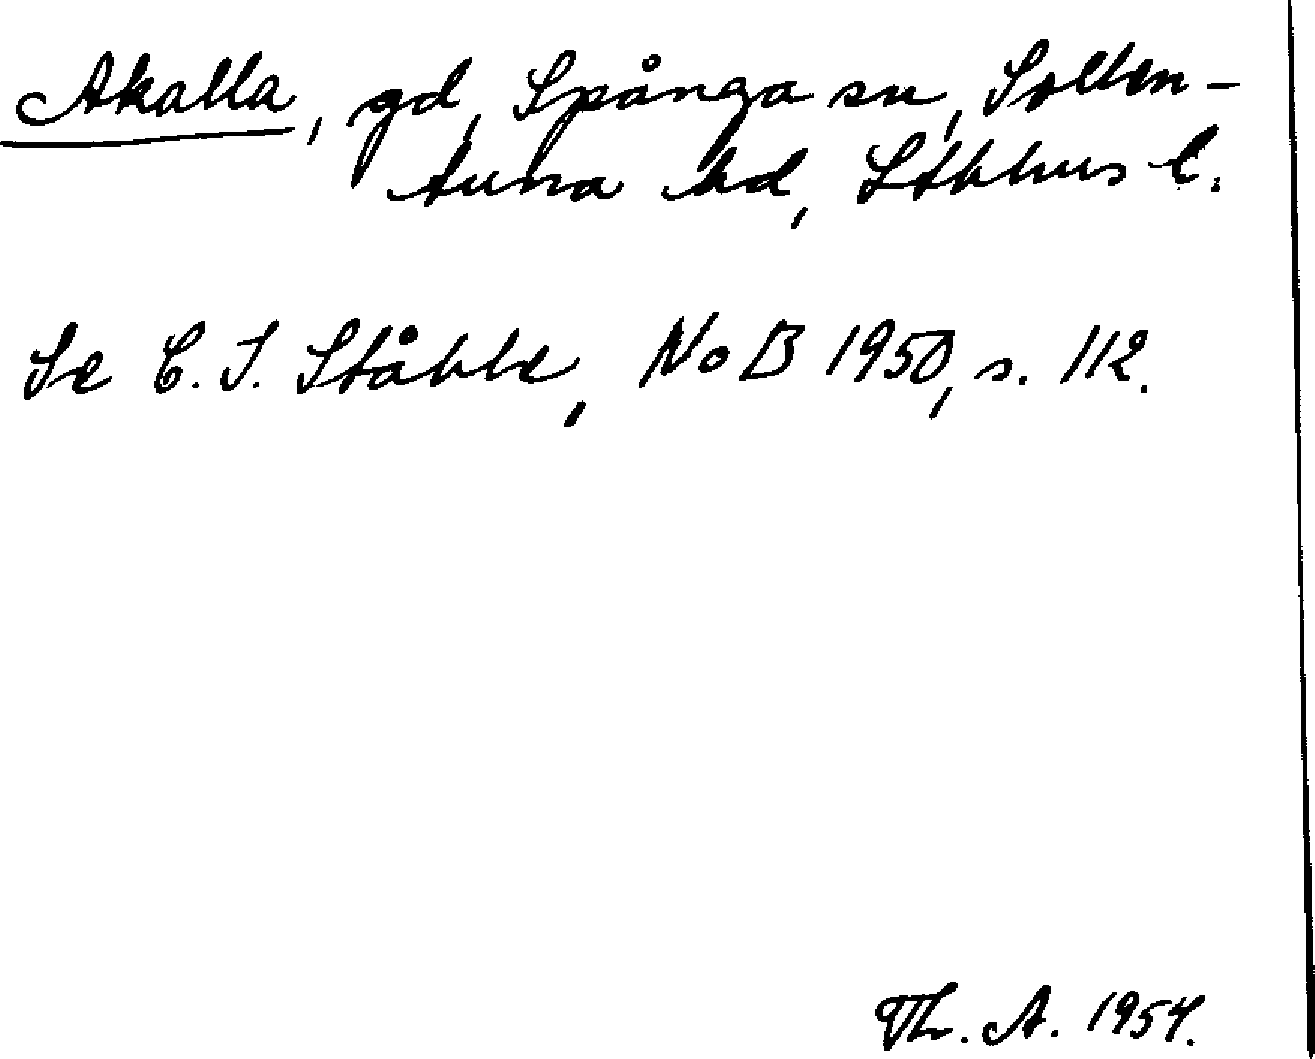 Akalla, gd, Spånga sn, Sollen-
tuna hd, Sthlms l.
Se C. I. Ståhle, NoB 1950, s. 112.
Th. A. 1954.